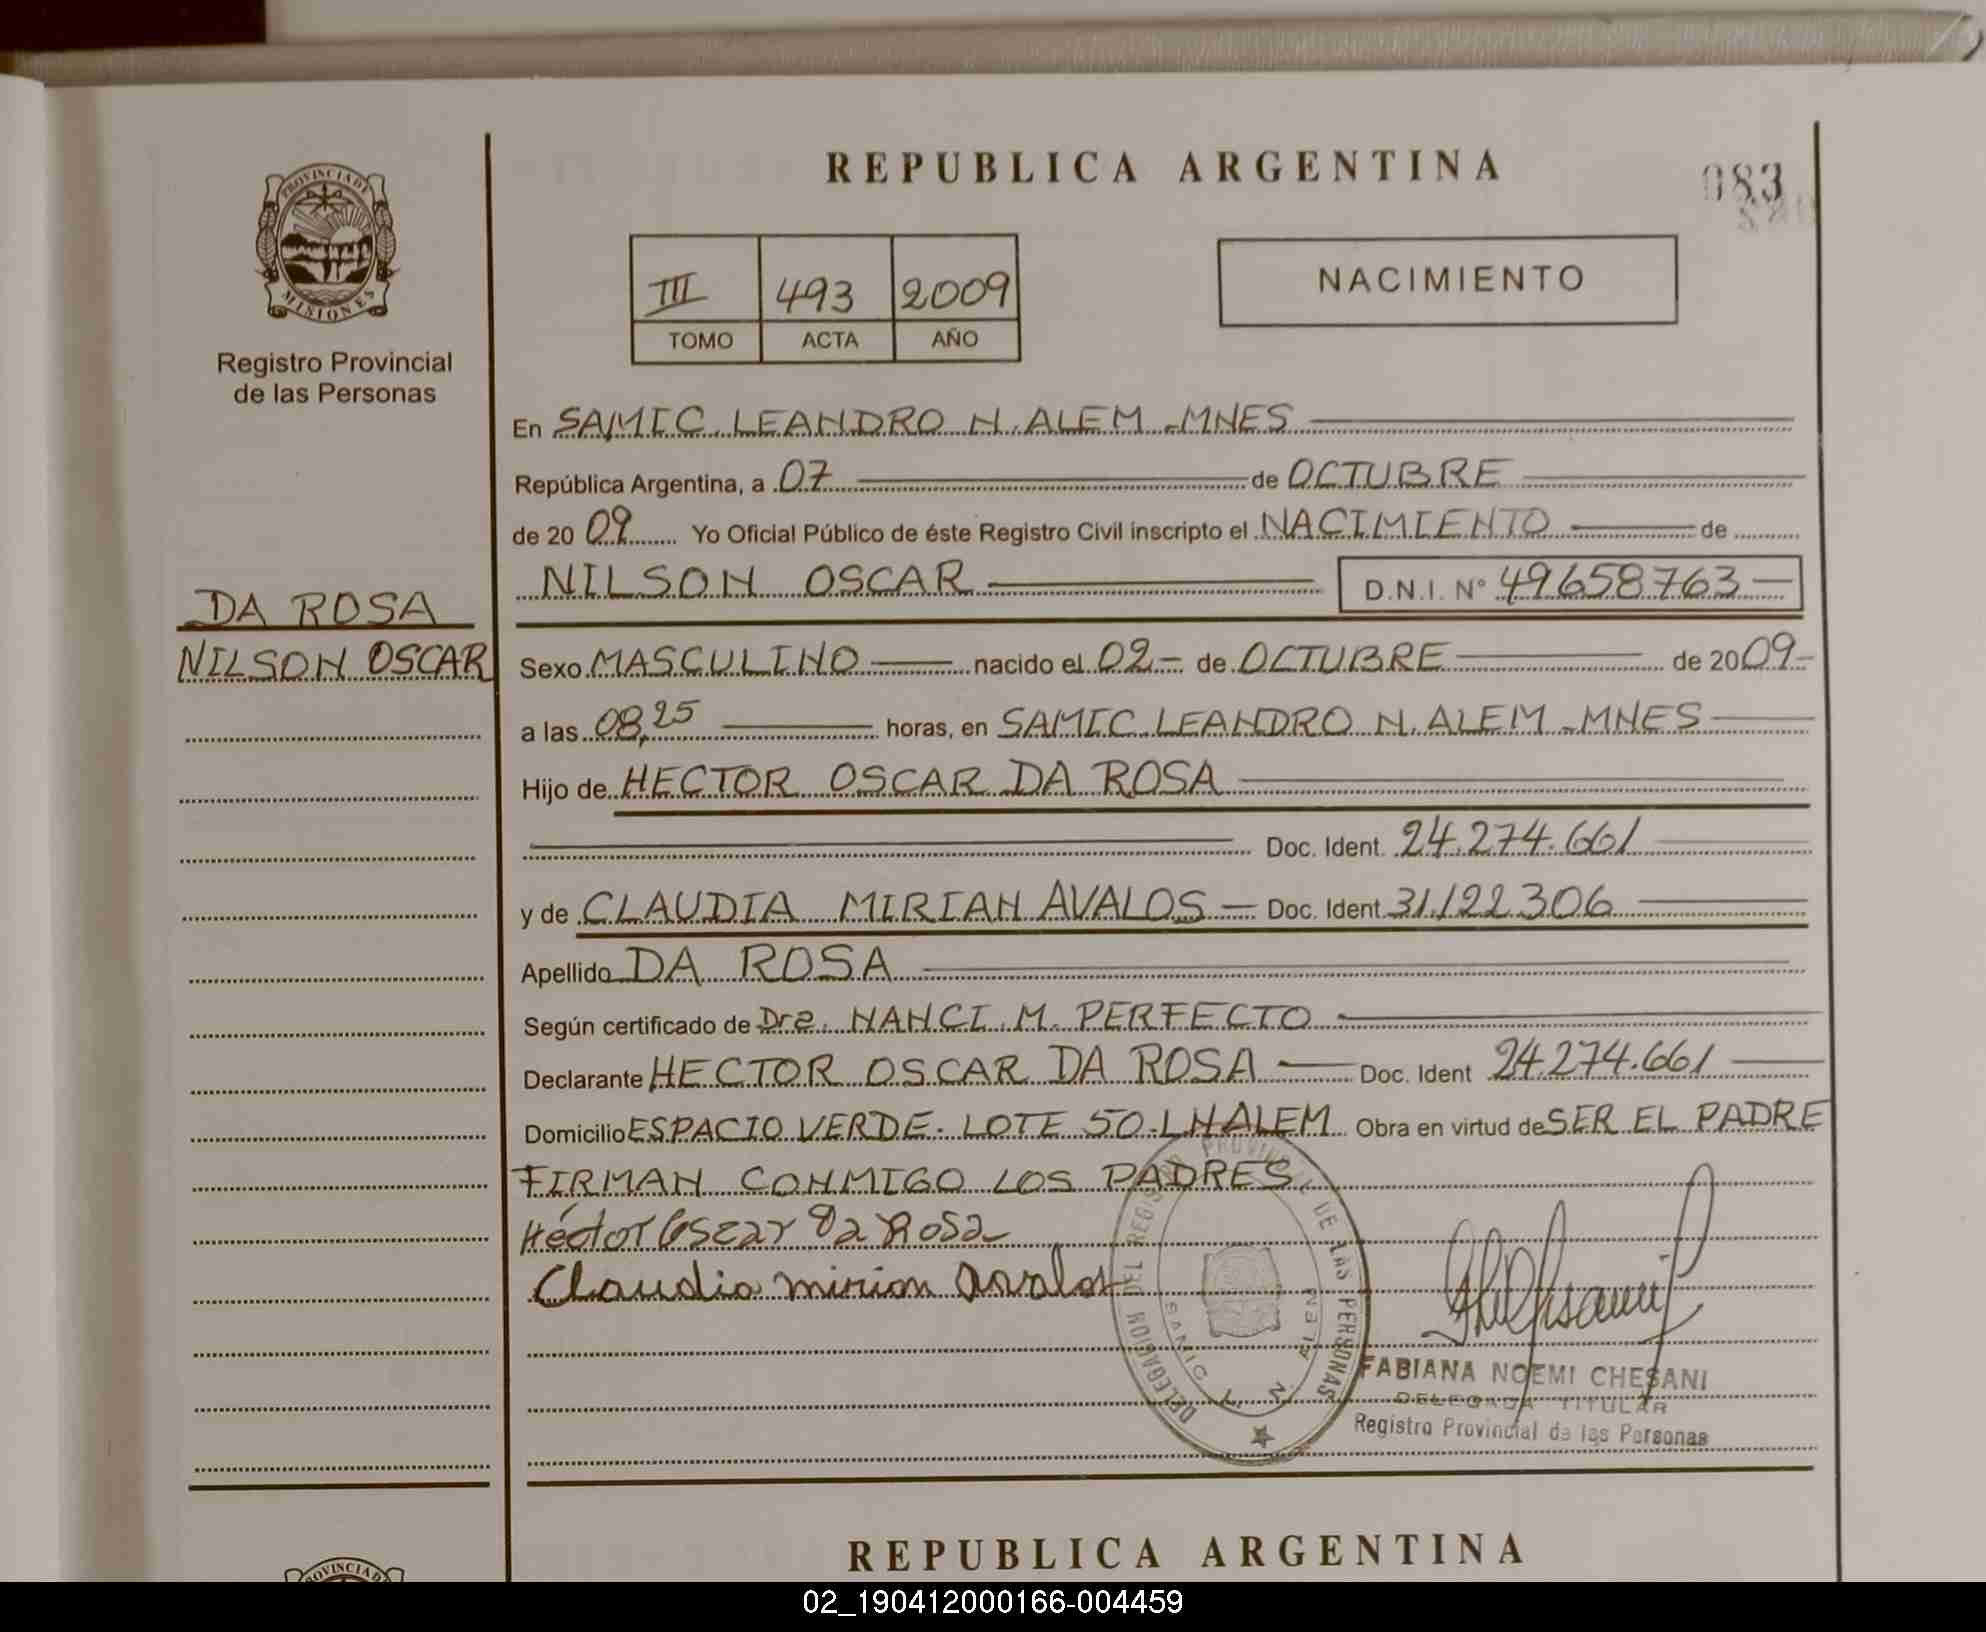 REPUBLICA ARGENTINA
083
PROVINCIA DE
MISIONES
Registro Provincial
de las Personas
III 493 2009
TOMO ACTA AÑO
NACIMIENTO
En SAMIC. LEANDRO N. ALEM - MNES
República Argentina, a 07 de OCTUBRE
de 20 09 Yo Oficial Público de éste Registro Civil inscripto el NACIMIENTO de
NILSON OSCAR D.N.I. N° 49658763
DA ROSA
NILSON OSCAR
Sexo MASCULINO nacido el 02 - de OCTUBRE de 20 09 -
a las 08,25 horas, en SAMIC. LEANDRO N. ALEM - MNES
Hijo de HECTOR OSCAR DA ROSA
Doc. Ident. 24.274.661
y de CLAUDIA MIRIAN AVALOS - Doc. Ident. 31.122.306
Apellido DA ROSA
Según certificado de Dra. NANCI. M. PERFECTO
Declarante HECTOR OSCAR DA ROSA Doc. Ident 24.274.661
Domicilio ESPACIO VERDE. LOTE 50. LNALEM Obra en virtud de SER EL PADRE
FIRMAN CONMIGO LOS PADRES
Héctor Oscar Da Rosa
Claudia mirian Avalos
DELEGACION DEL REGISTRO PROVINCIAL DE LAS PERSONAS
SAMIC
FABIANA NOEMI CHESANI
DELEGADA TITULAR
Registro Provincial de las Personas
REPUBLICA ARGENTINA
02_190412000166-004459